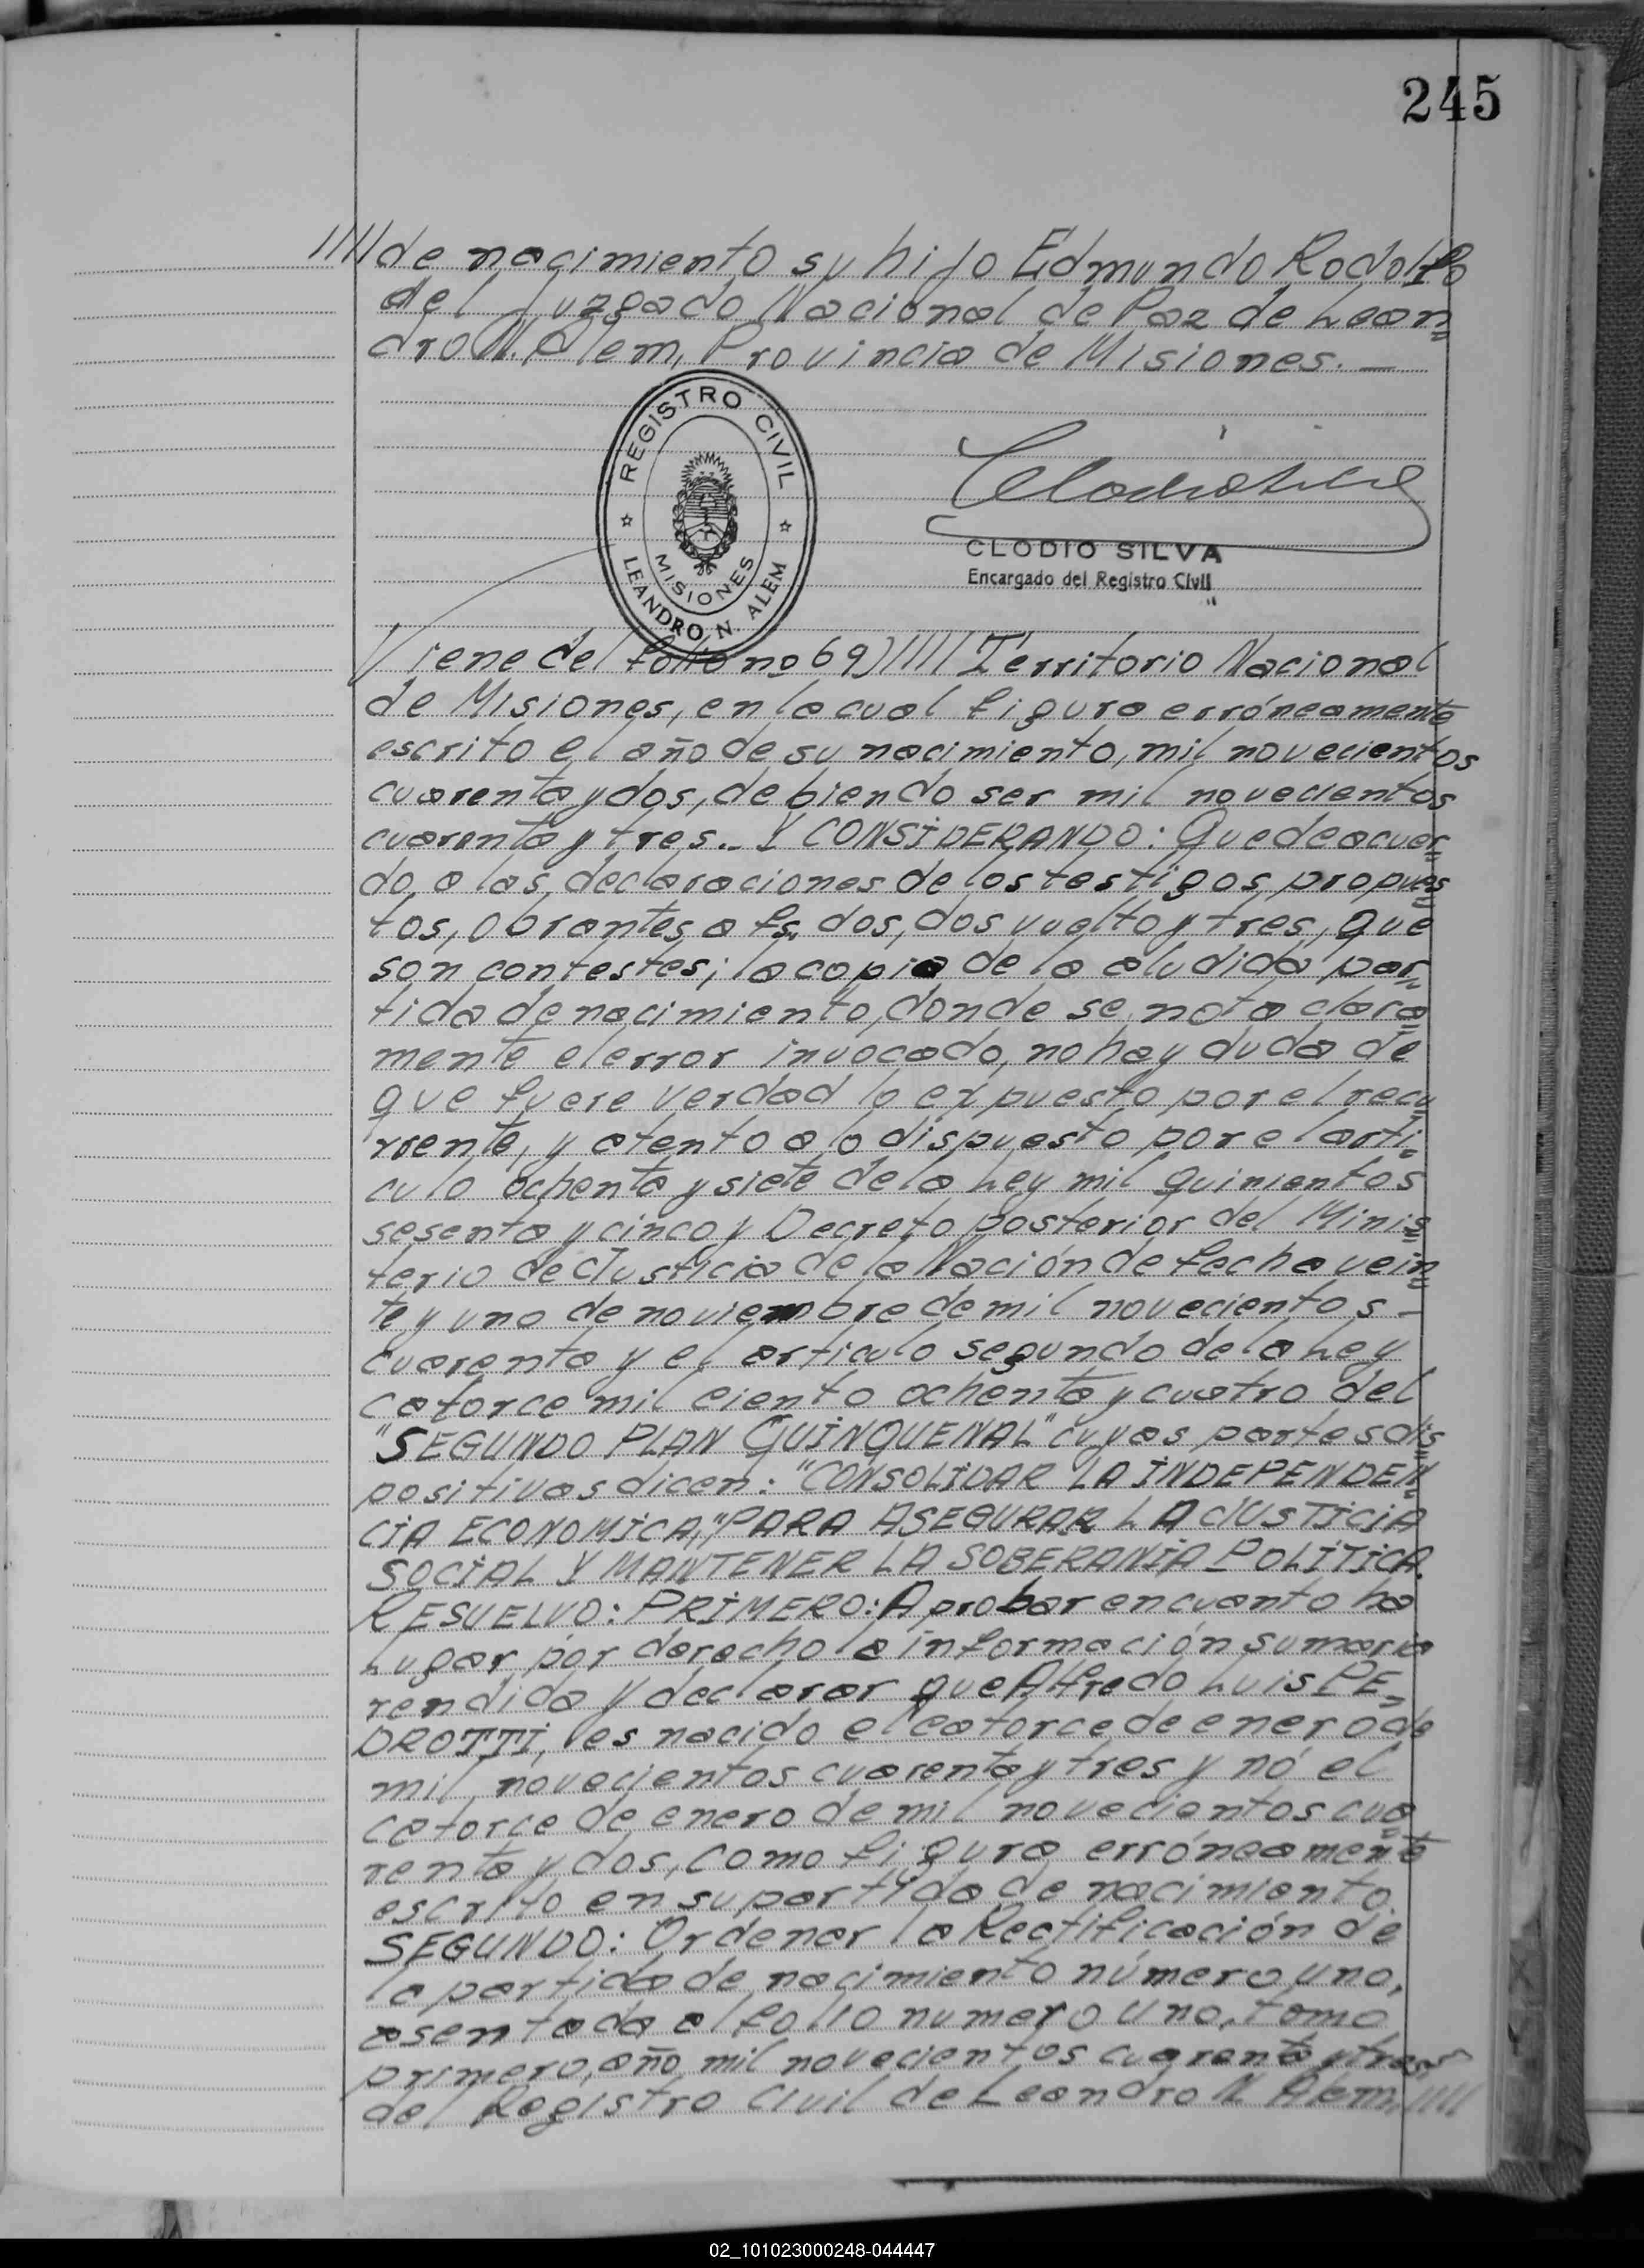 245
////de nacimiento su hijo Edmundo Rodolfo
del Juzgado Nacional de Paz de Lean=
dro N. Alem, Provincia de Misiones.—
REGISTRO CIVIL
MISIONES
LEANDRO N. ALEM
CLODIO SILVA
Encargado del Registro Civil
Viene del folio no 69)//// Territorio Nacional
de Misiones, en la cual figura erróneamente
escrito el año de su nacimiento, mil novecientos
cuarenta y dos, debiendo ser mil novecientos
cuarenta y tres.- Y CONSIDERANDO: Que de acuer=
do, a las, declaraciones de los testigos, propues=
tos, obrantes a fs. dos, dos vuelto y tres, que
son contestes; la copia de la aludida par=
tida de nacimiento, donde se nota clara=
mente el error invocado, no hay duda de
que fuere verdad lo expuesto por el recu=
rrente, y atento a lo dispuesto por el artí=
culo ochenta y siete de la Ley mil quinientos
sesenta y cinco y Decreto posterior del Minis=
terio de Justicia de la Nación de fecha vein=
te y uno de noviembre de mil novecientos -
cuarenta y el artículo segundo de la Ley
catorce mil ciento ochenta y cuatro del
"SEGUNDO PLAN QUINQUENAL" cuyas partes dis=
positivas dicen: "CONSOLIDAR LA INDEPENDEN=
CIA ECONOMICA," "PARA ASEGURAR LA JUSTICIA
SOCIAL Y MANTENER LA SOBERANIA POLITICA.
RESUELVO: PRIMERO: Aprobar en cuanto ha
Lugar por derecho la información sumaria
rendida y declarar que Alfredo Luis PE=
DROTTI, es nacido el catorce de enero de
mil novecientos cuarenta y tres y nó el
catorce de enero de mil novecientos cua=
renta y dos, como figura erróneamente
escrito en su partida de nacimiento.
SEGUNDO: Ordenar la Rectificación de
la partida de nacimiento número uno,
asentada al folio numero uno, tomo
primero, año mil novecientos cuarenta y tres,
del Registro Civil de Leandro N. Alem,////
02_101023000248-044447